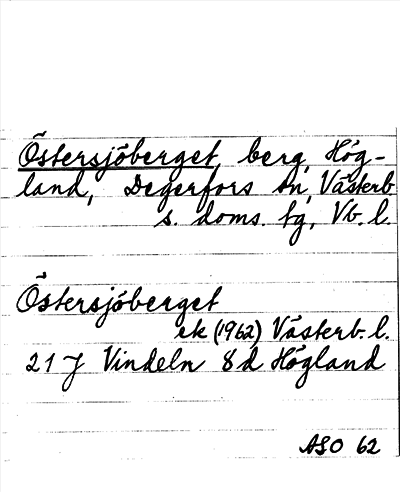 Östersjöberget, berg, Hög-
land, Degerfors sn, Västerb
s. doms. tg, Vb. l.
Östersjöberget
rk (1962) Västerb. l.
21 J Vindeln 8 d Högland
ASO 62